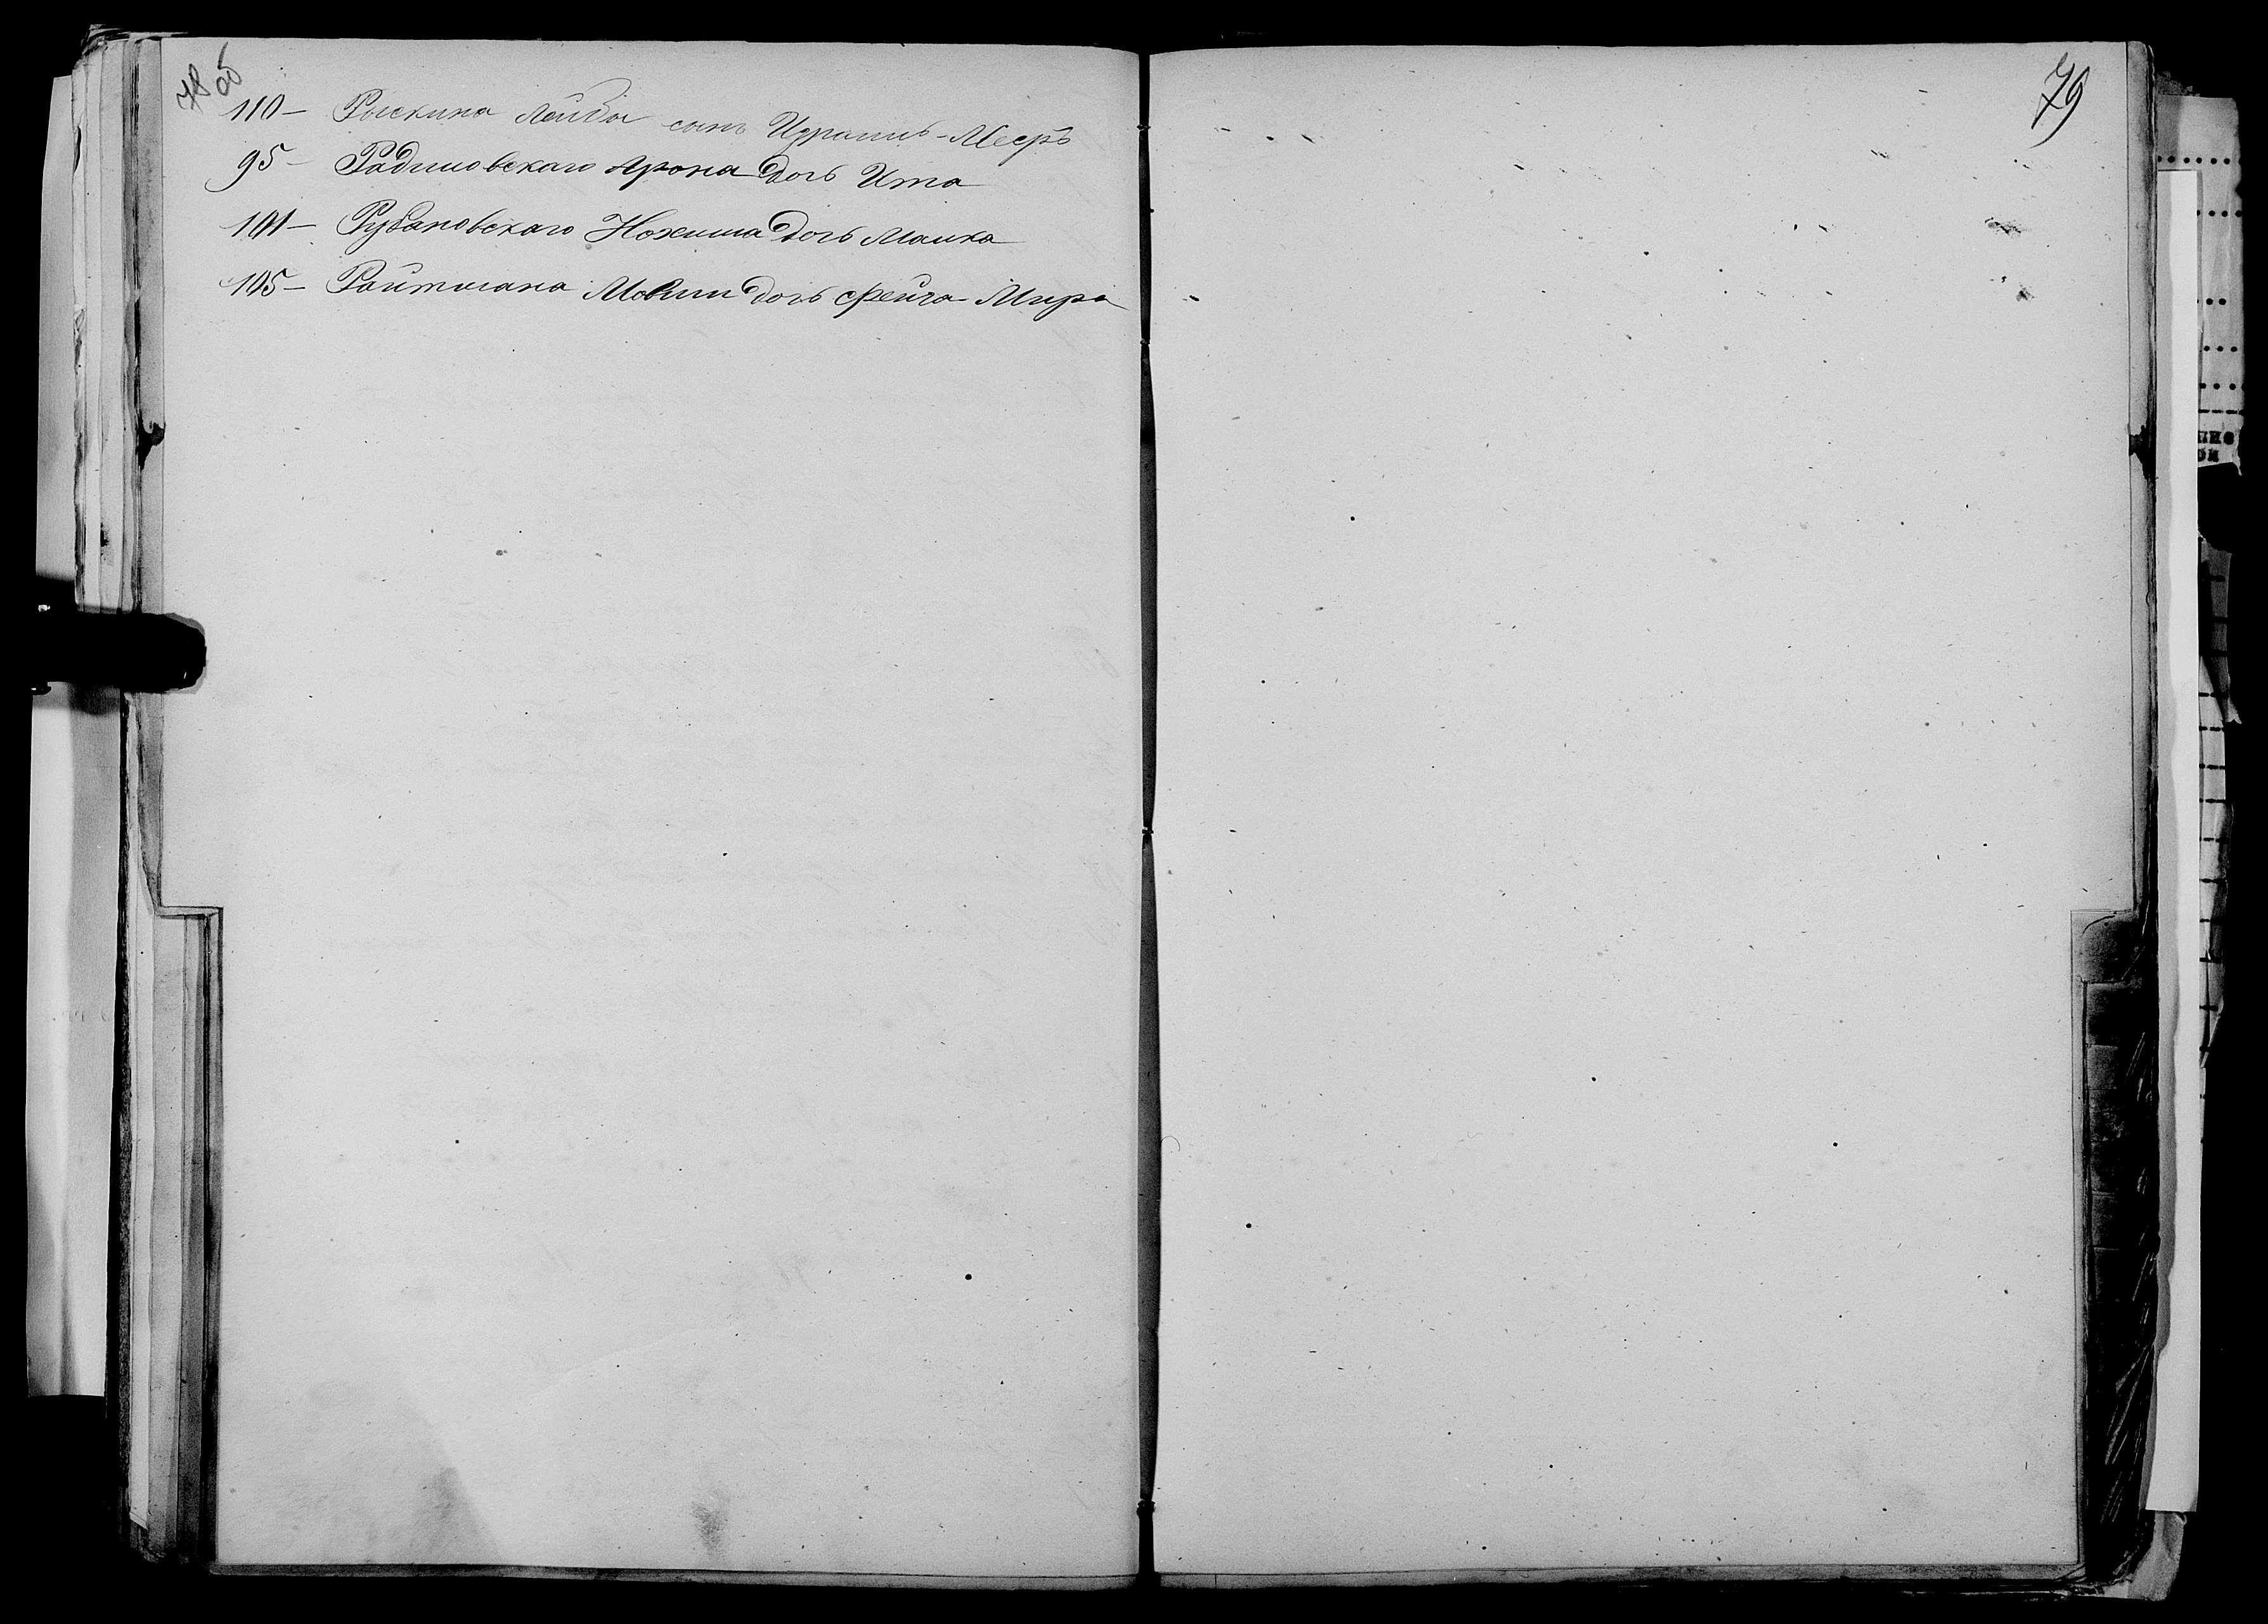 78 об
110 – Рыскина Лейбы сынъ Израиль-Мееръ
95 – Радиловскаго Арона дочь Ита
101 – Рубановскаго Нохима дочь Малка
105 – Райтмана Мовши дочь Фейга-Мира
79